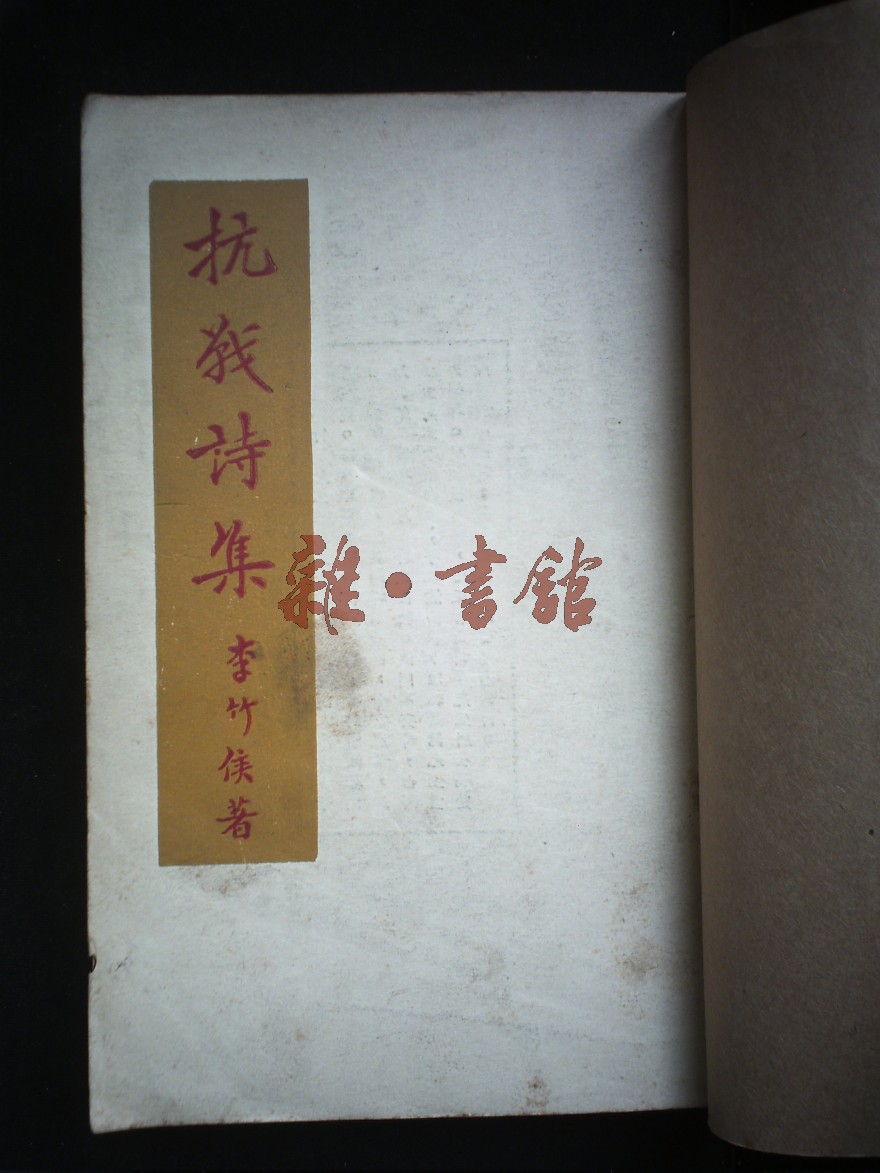 抗戰詩集
李竹侯著
雜·書館